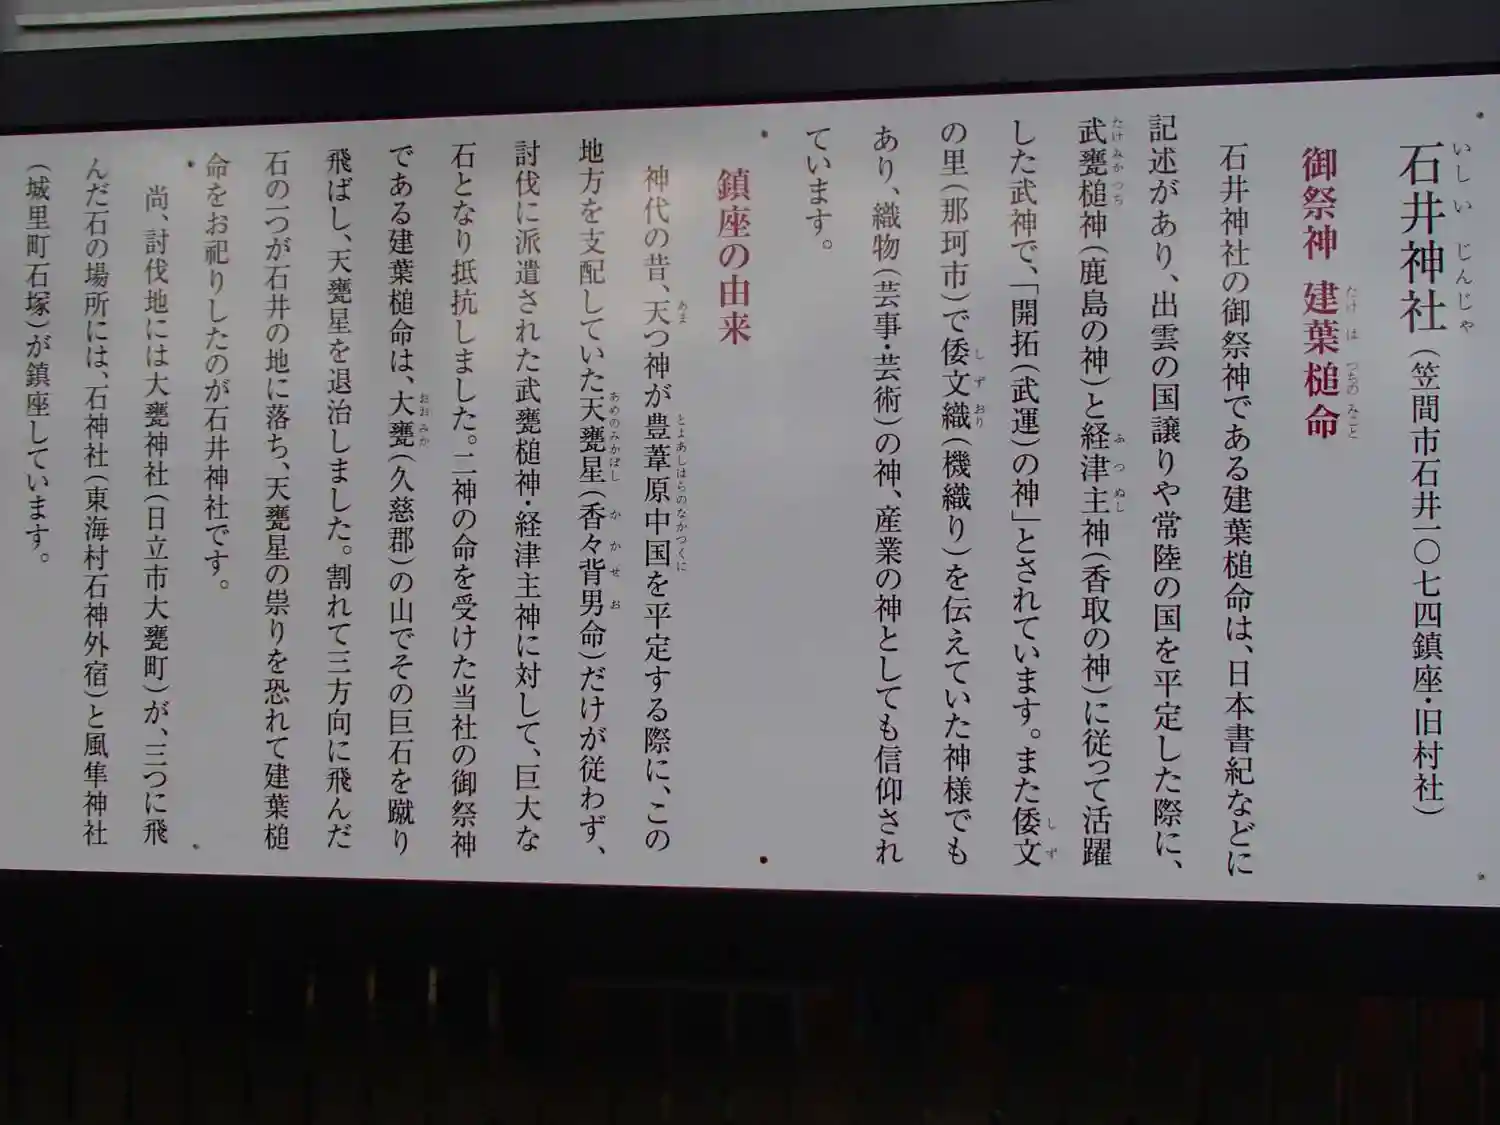 石井神社（笠間市石井一〇七四鎮座・旧村社）
いしいじんじゃ
御祭神 建葉槌命
たけはつちのみこと
石井神社の御祭神である建葉槌命は、日本書紀などに
記述があり、出雲の国譲りや常陸の国を平定した際に、
武甕槌神（鹿島の神）と経津主神（香取の神）に従って活躍
たけみかつち ふつぬし
した武神で、「開拓（武運）の神」とされています。また倭文
しず
の里（那珂市）で倭文織（機織り）を伝えていた神様でも
しずおり
あり、織物（芸事・芸術）の神、産業の神としても信仰され
ています。
鎮座の由来
神代の昔、天つ神が豊葦原中国を平定する際に、この
あま とよあしはらのなかつくに
地方を支配していた天甕星（香々背男命）だけが従わず、
あめのみかぼし かかせお
討伐に派遣された武甕槌神・経津主神に対して、巨大な
石となり抵抗しました。二神の命を受けた当社の御祭神
である建葉槌命は、大甕（久慈郡）の山でその巨石を蹴り
おおみか
飛ばし、天甕星を退治しました。割れて三方向に飛んだ
石の一つが石井の地に落ち、天甕星の祟りを恐れて建葉槌
命をお祀りしたのが石井神社です。
尚、討伐地には大甕神社（日立市大甕町）が、三つに飛
んだ石の場所には、石神社（東海村石神外宿）と風隼神社
（城里町石塚）が鎮座しています。